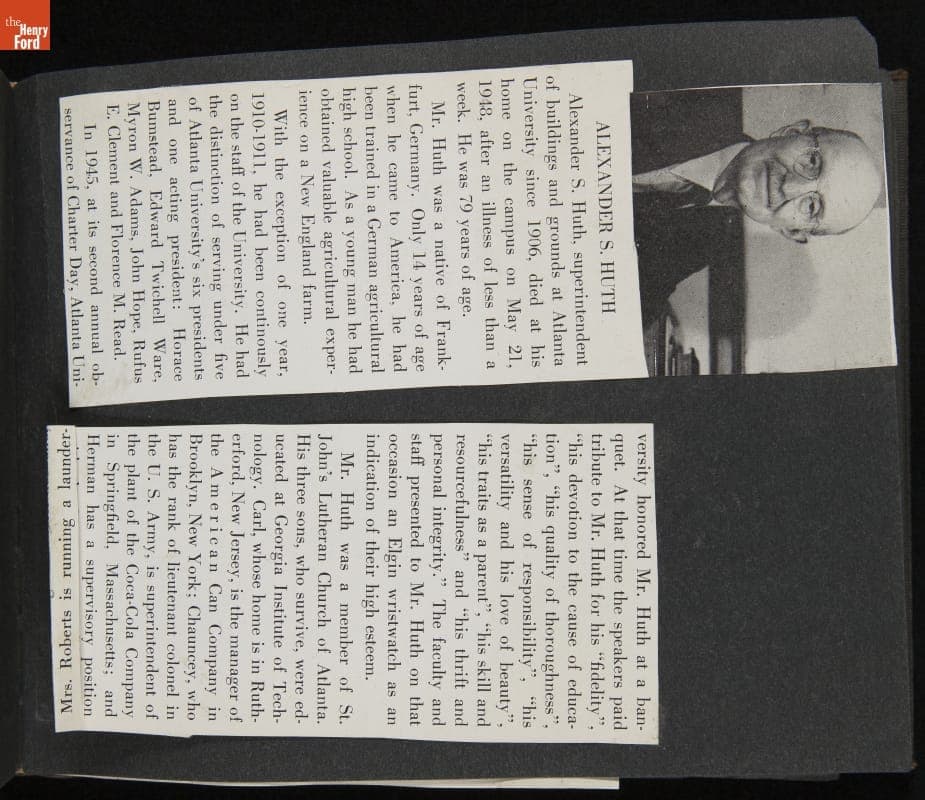 the
Henry
Ford
ALEXANDER S. HUTH
Alexander S. Huth, superintendent
of buildings and grounds at Atlanta
University since 1906, died at his
home on the campus on May 21,
1948, after an illness of less than a
week. He was 79 years of age.
Mr. Huth was a native of Frank-
furt, Germany. Only 14 years of age
when he came to America, he had
been trained in a German agricultural
high school. As a young man he had
obtained valuable agricultural exper-
ience on a New England farm.
With the exception of one year,
1910-1911, he had been continuously
on the staff of the University. He had
the distinction of serving under five
of Atlanta University's six presidents
and one acting president: Horace
Bumstead, Edward Twichell Ware,
Myron W. Adams, John Hope, Rufus
E. Clement and Florence M. Read.
In 1945, at its second annual ob-
servance of Charter Day, Atlanta Uni-
versity honored Mr. Huth at a ban-
quet. At that time the speakers paid
tribute to Mr. Huth for his "fidelity",
"his devotion to the cause of educa-
tion", "his quality of thoroughness",
"his sense of responsibility", "his
versatility and his love of beauty",
"his traits as a parent", "his skill and
resourcefulness" and "his thrift and
personal integrity." The faculty and
staff presented to Mr. Huth on that
occasion an Elgin wristwatch as an
indication of their high esteem.
Mr. Huth was a member of St.
John's Lutheran Church of Atlanta.
His three sons, who survive, were ed-
ucated at Georgia Institute of Tech-
nology. Carl, whose home is in Ruth-
erford, New Jersey, is the manager of
the American Can Company in
Brooklyn, New York; Chauncey, who
has the rank of lieutenant colonel in
the U. S. Army, is superintendent of
the plant of the Coca-Cola Company
in Springfield, Massachusetts; and
Herman has a supervisory position
Mrs. Roberts is running a launder-